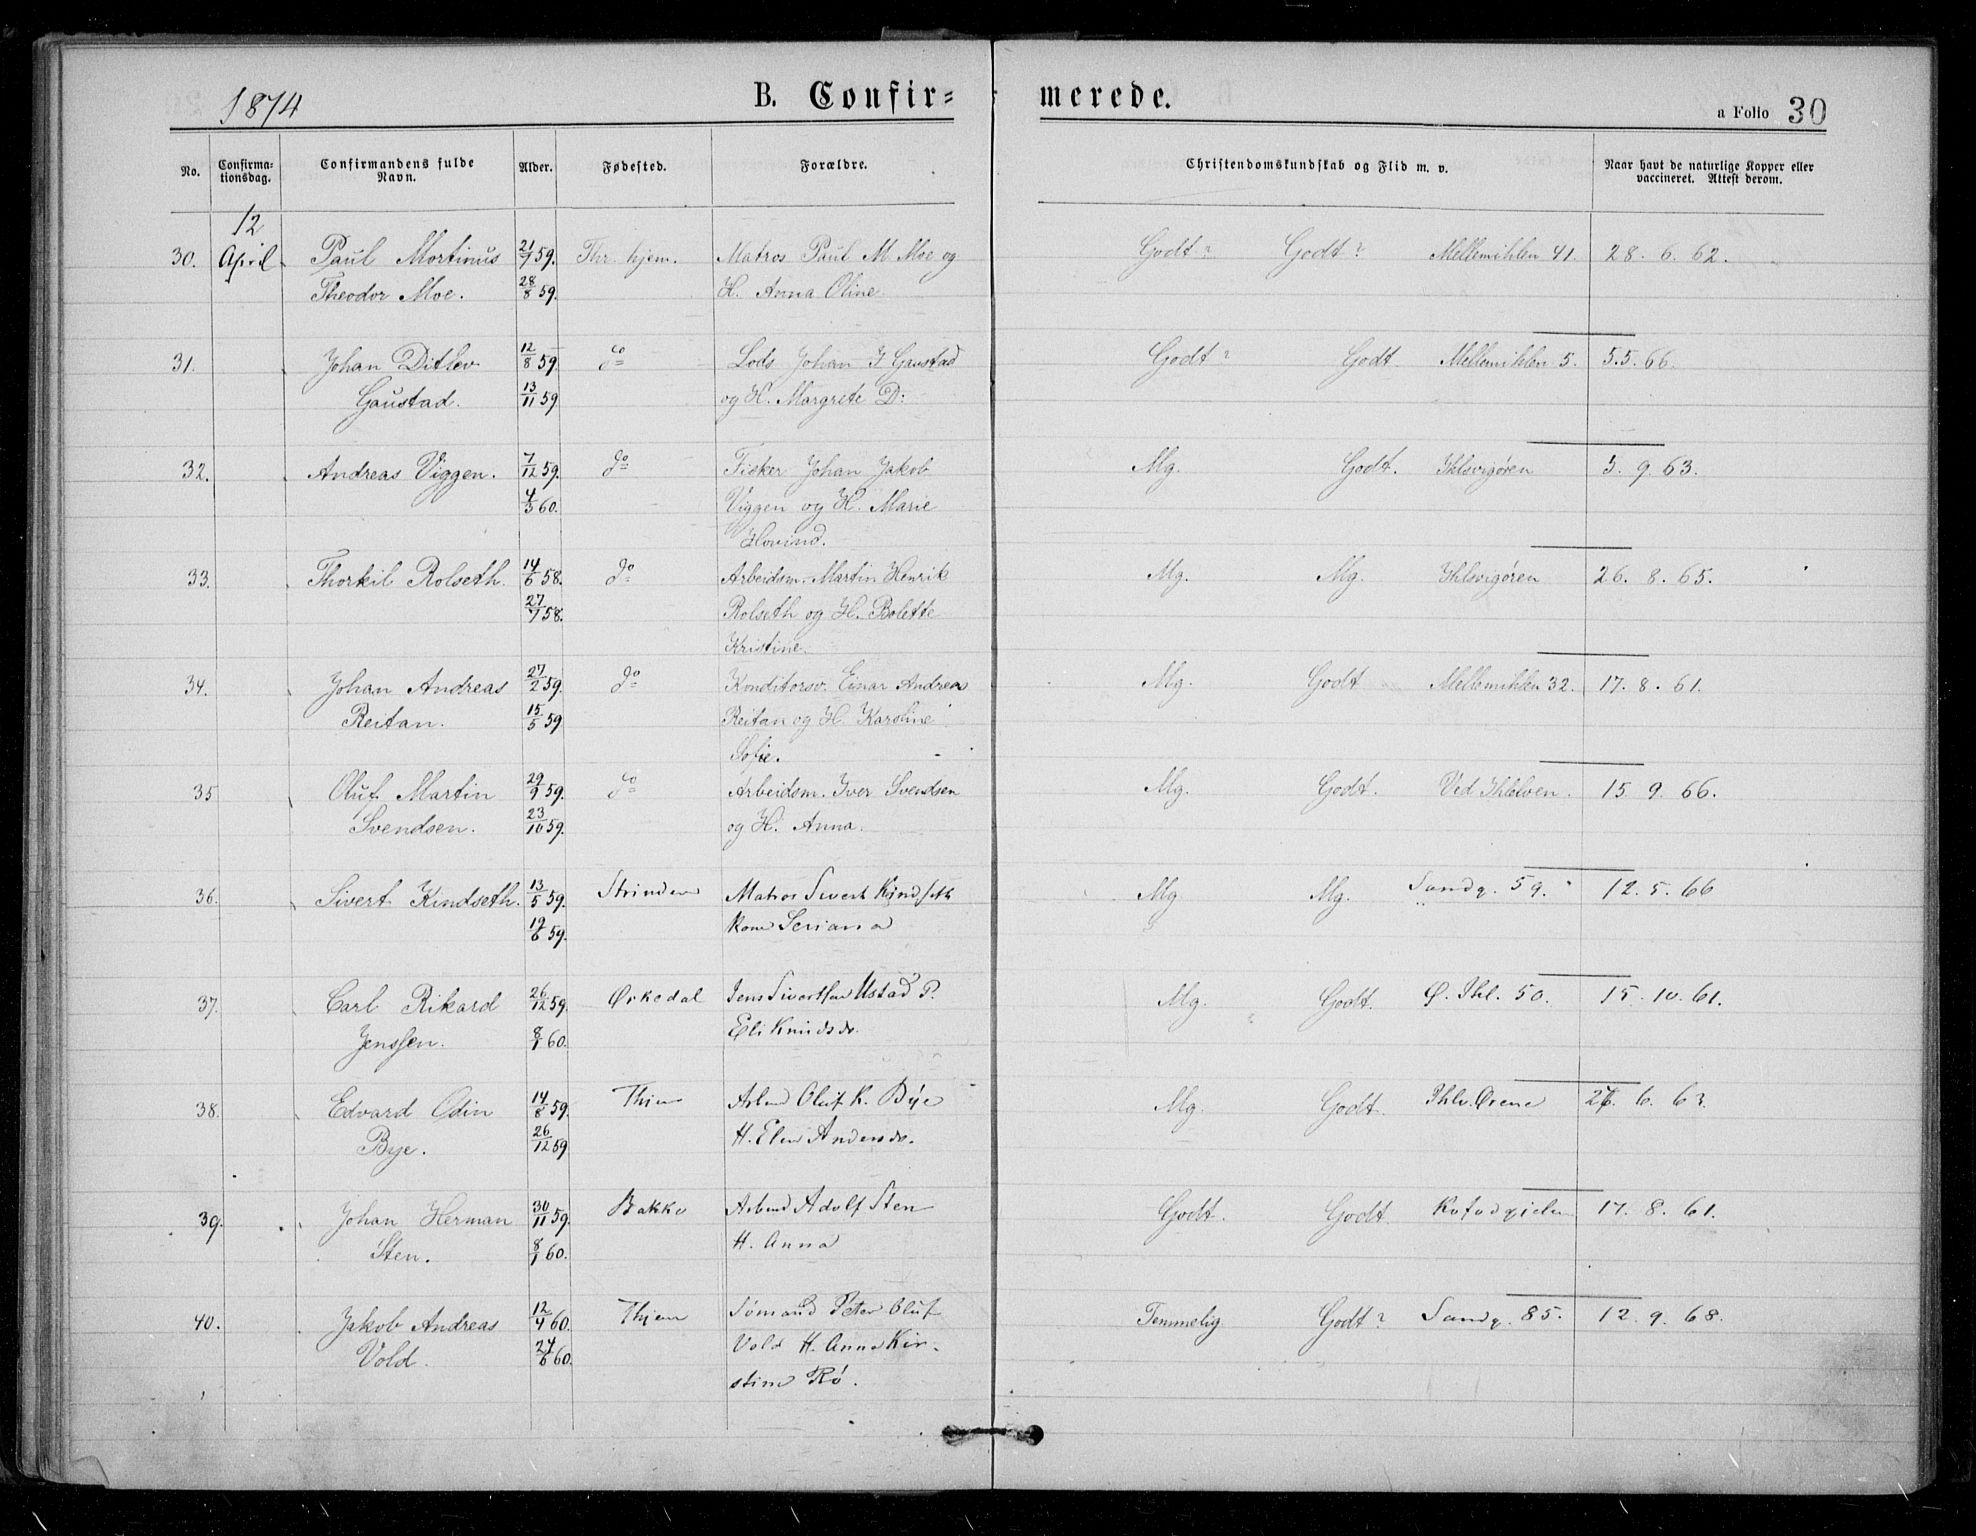 1874 B. Confir= merede. a Folio 30
No. Confirma-tionsdag. Confirmandens fulde Navn. Alder. Fødested. Forældre. Christendomskundskab og Flid m. v. Naar havt de naturlige Kopper eller vaccineret. Attest derom.
12
30. April Paul Mortinus 21/7 59. Thr. hjem. Matros Paul M. Moe og Godt? Godt? Mellemihlen 41. 28. 6. 62.
Theodor Moe. 28/8 59. H. Anna Oline
31. Johan Ditlev 12/8 59. do Lods Johan J Gaustad Godt? Godt. Mellemihlen 5. 5.5. 66.
Gaustad. 13/11 59 og H. Margrete D:
32. Andreas Viggen. 7/12 59. do Fisker Johan Jakob Mg. Godt. Ihlsvigøren 5. 9. 63.
4/3 60. Viggen og H. Marie
Hovind.
33. Thorkil Rolseth. 14/6 58. do Arbeidsm. Martin Henrik Mg. Mg. Ihlsvigøren 26. 8. 65.
27/7 58. Rolseth og H. Bolette
Kristine.
34. Johan Andreas 27/2 59. do Konditorsv. Einar Andrea Mg. Godt Mellemihlen 32. 17. 8. 61.
Reitan. 15/5 59 Reitan og H. Karoline
Sofie.
35 Oluf Martin 29/9 59. do Arbeidsm. Iver Svendsen Mg. Godt. Ved Ihlelven. 15. 9. 66.
Svendsen. 23/10 59. og H. Anna.
36. Sivert Kindseth. 13/5 59. Strinden Matros Sivert Kindseth Mg. Mg. Sandg. 59. 12. 5. 66
19/6 59. Kone Seriana
37. Carl Rikard 26/12 59. Ørkedal Jens Sivertsen Ustad P. Mg. Godt. Ø. Ihl. 50. 15. 10. 61.
Jenssen. 8/1 60. Eli Knudsdr.
38. Edvard Odin 14/8 59. Thjem Arbmd Oluf K. Bye Mg. Godt. Ihlv. Ørene 6. 63.
Bye. 26/12 59 H. Elen Andersdr.
39. Johan Herman 30/11 59. Bakke Arbmd Adolf Sten Godt. Godt. 17. 8. 61.
Sten. 8/1 60. H. Anna
40. Jakob Andreas 12/4 60. Thjem Sømand Peter Oluf Temmelig Godt? Sandg. 85. 12. 9. 68.
Vold. 24/6 60. Vold H. Anna Kir-
stine Rø.